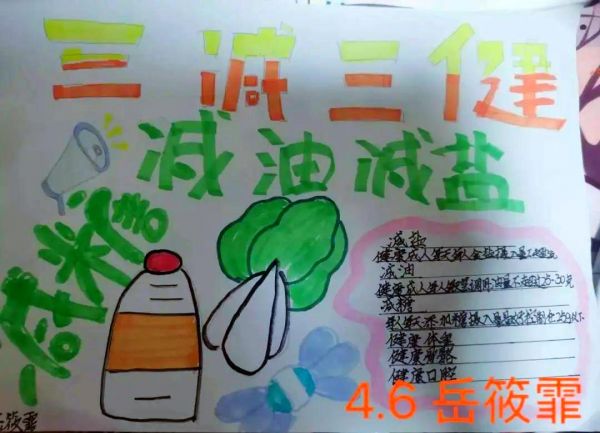 三减三健
减油减盐
减糖
减盐
健康成人每天每人食盐摄入量不超过
减油
健康成人每天烹调用油量不超过25-30克
减糖
每人每天添加糖摄入量最好控制在25g以下
健康体重
健康骨骼
健康口腔
岳筱霏
4.6 岳筱霏